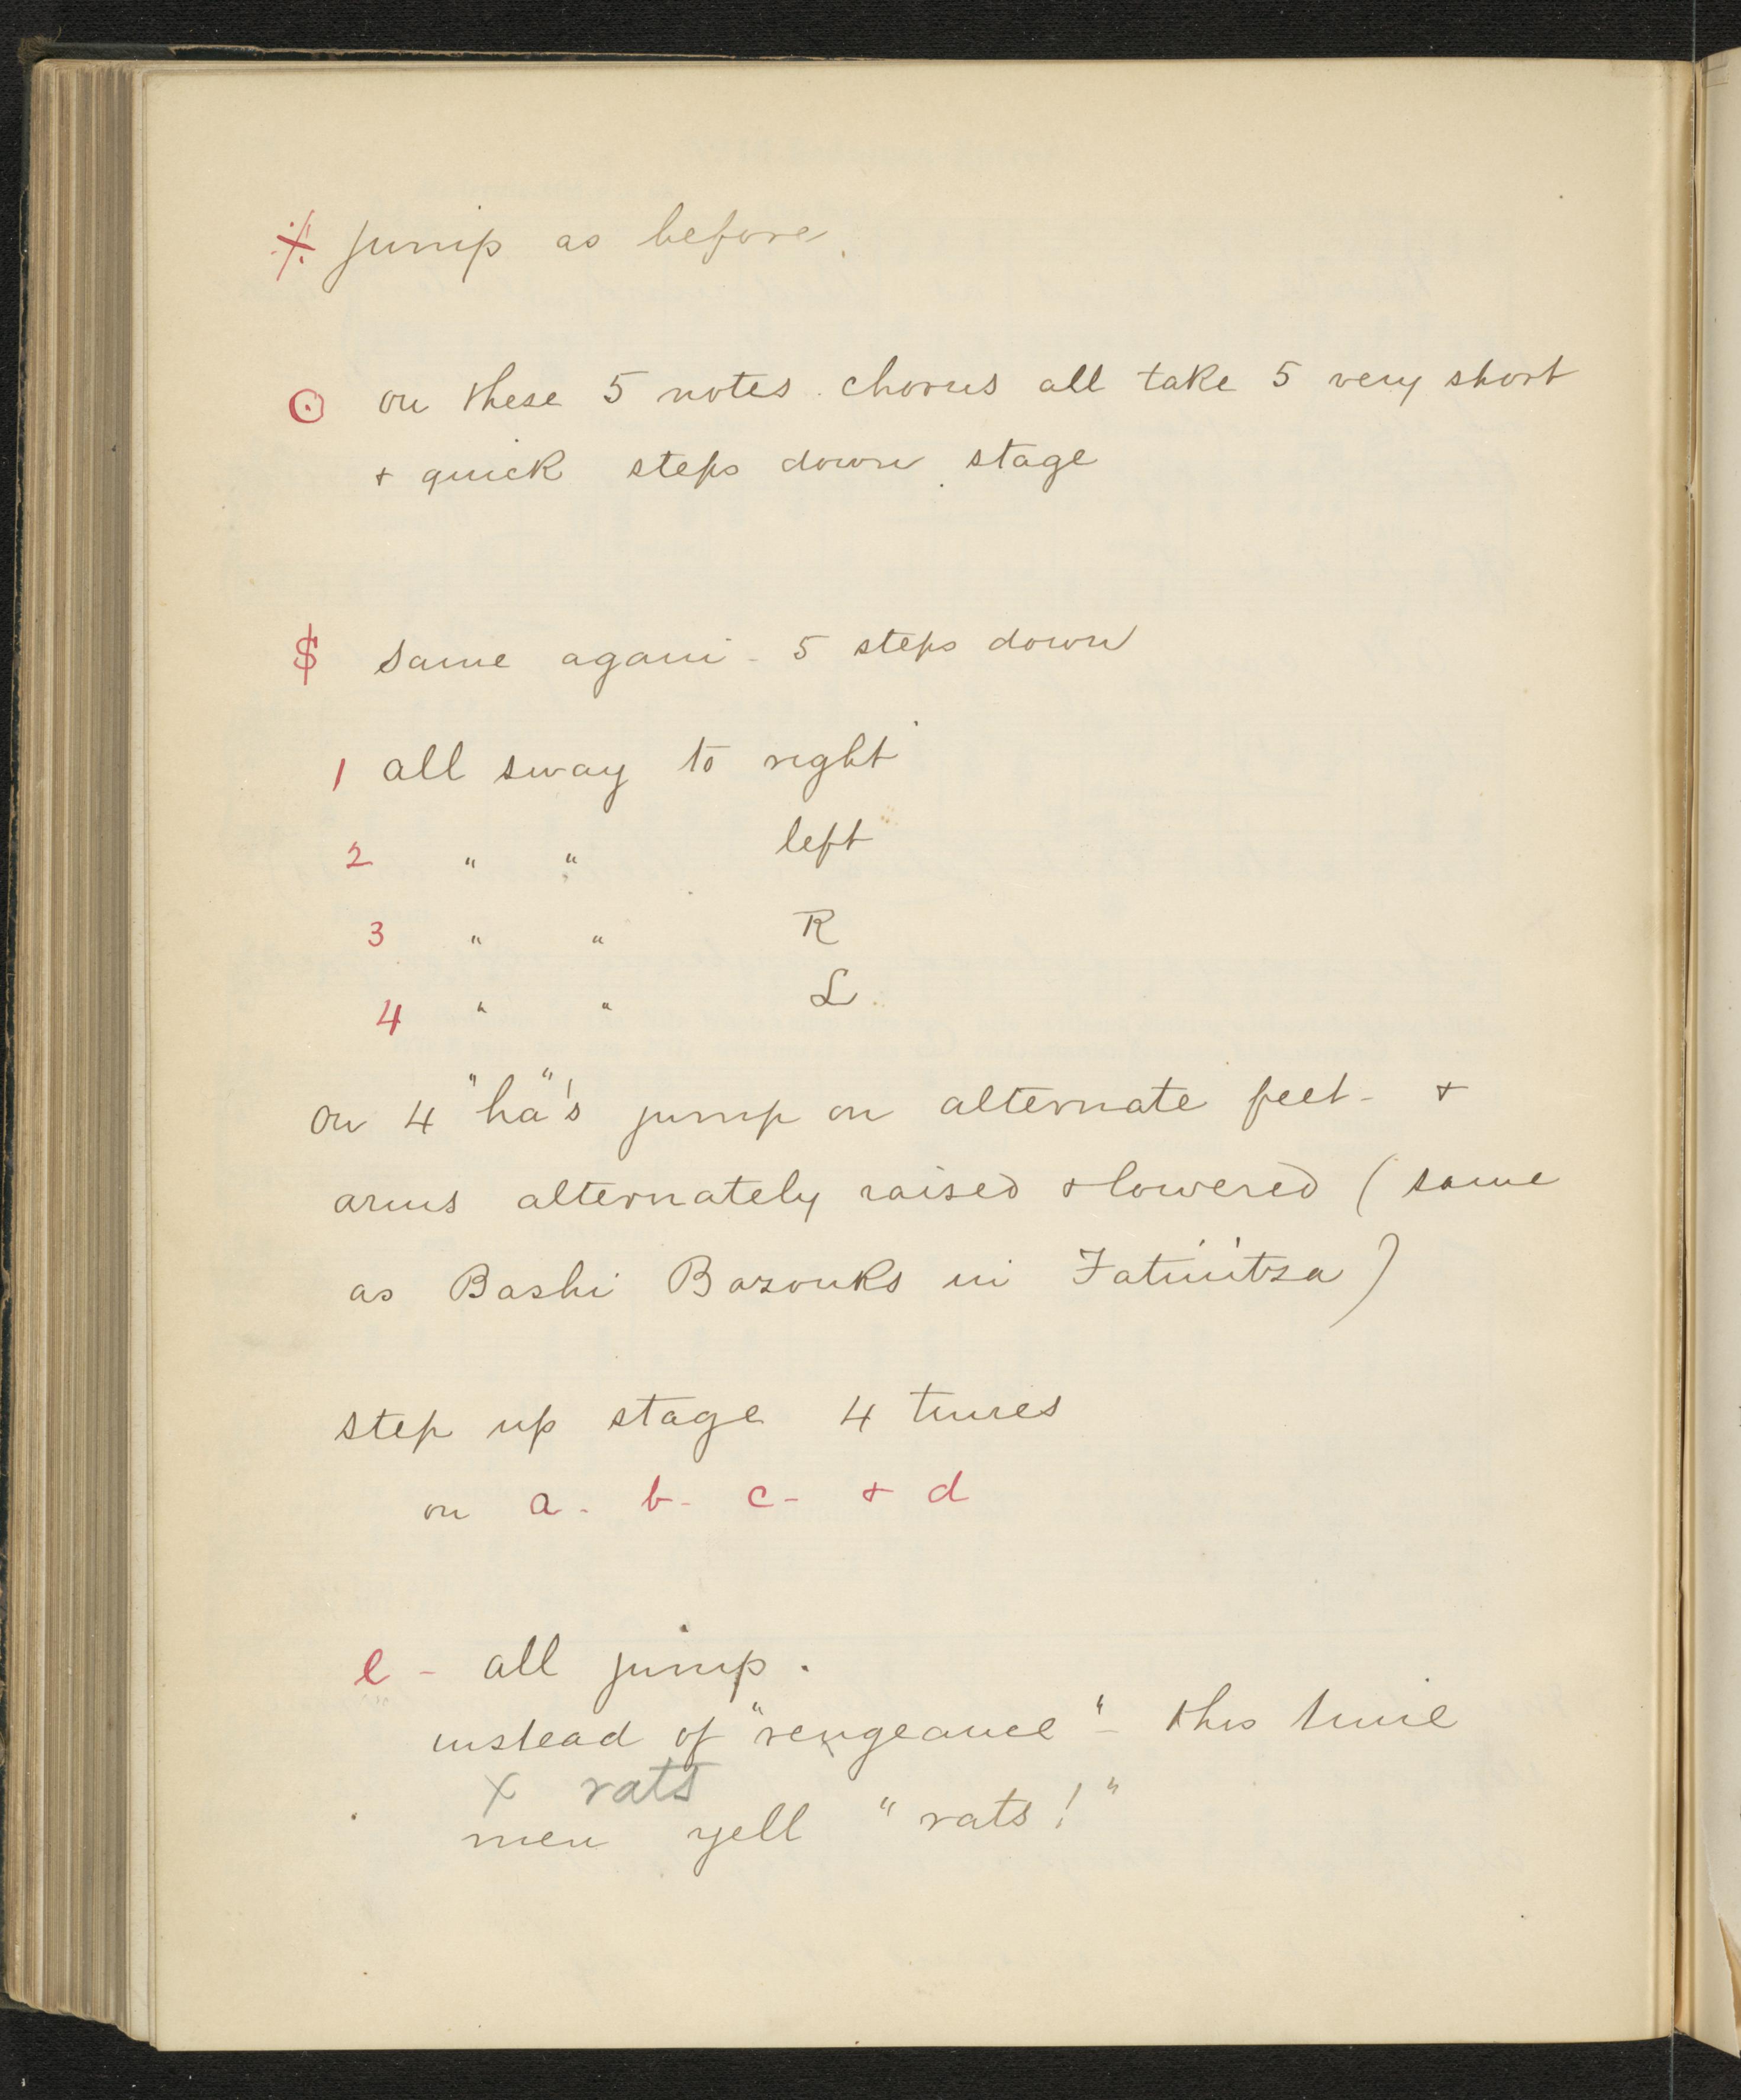 ※ jump as before.
⊙ on these 5 notes chorus all take 5 very short
+ quick steps down stage
$ Same again - 5 steps down
1 all sway to right
2 " " left
3 " " R
4 " " L
on 4 "ha"'s jump on alternate feet - +
arms alternately raised + lowered (same
as Bashi Bazouks in Fatinitza)
step up stage 4 times
on a - b - c - + d
e - all jump.
instead of "vengeance" - this time
x rats
men yell "rats!"